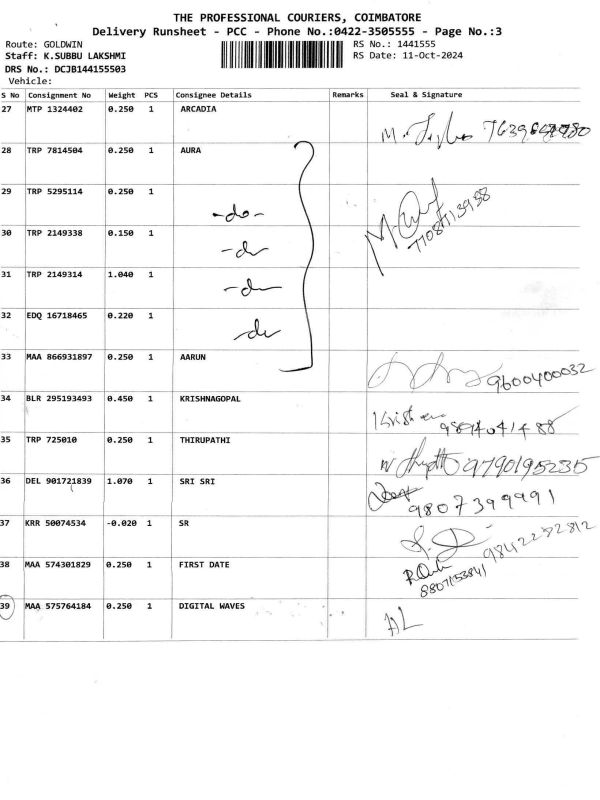 THE PROFESSIONAL COURIERS, COIMBATORE
Delivery Runsheet - PCC - Phone No.:0422-3505555 - Page No.:3
Route: GOLDWIN RS No.: 1441555
Staff: K.SUBBU LAKSHMI RS Date: 11-Oct-2024
DRS No.: DCJB144155503
Vehicle:
S No Consignment No Weight PCS Consignee Details Remarks Seal & Signature
27 MTP 1324402 0.250 1 ARCADIA
28 TRP 7814504 0.250 1 AURA
29 TRP 5295114 0.250 1 -do-
30 TRP 2149338 0.150 1 -do-
31 TRP 2149314 1.040 1 -do-
32 EDQ 16718465 0.220 1 -do-
33 MAA 866931897 0.250 1 AARUN 9600400032
34 BLR 295193493 0.450 1 KRISHNAGOPAL
35 TRP 725010 0.250 1 THIRUPATHI 9790195235
36 DEL 901721839 1.070 1 SRI SRI 9807399991
37 KRR 50074534 -0.020 1 SR 9842252812
38 MAA 574301829 0.250 1 FIRST DATE
39 MAA 575764184 0.250 1 DIGITAL WAVES